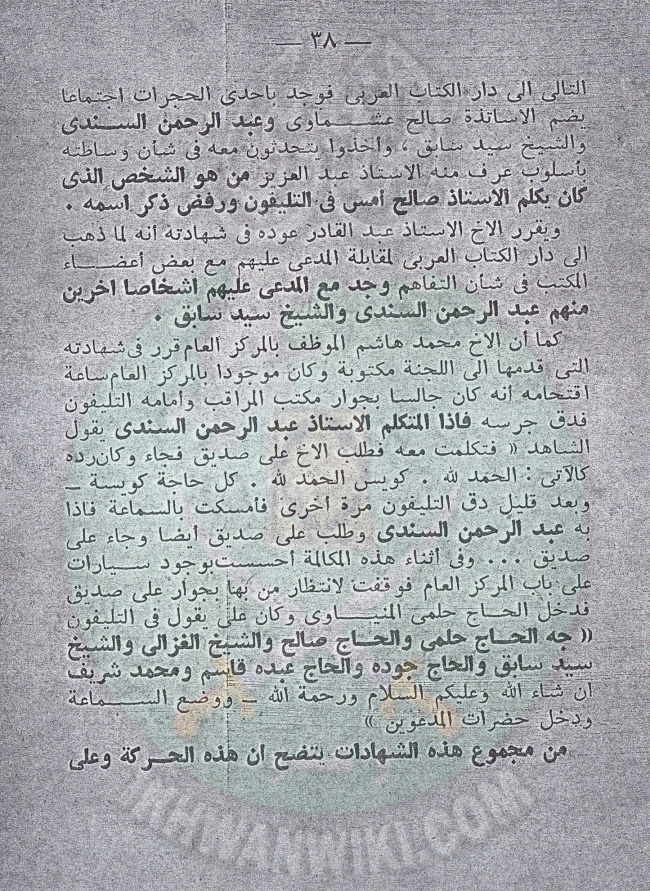 — ٣٨ —
التالى الى دار الكتاب العربى فوجد باحدى الحجرات اجتماعا
يضم الاساتذة صالح عشـــماوى وعبد الرحمن الســـندى
والشيخ سيد سابق ، وأخذوا يتحدثون معه فى شأن وساطته
بأسلوب عرف منه الاستاذ عبد العزيز من هو الشخص الذى
كان يكلم الاستاذ صالح أمس فى التليفون ورفض ذكر اسمه .
ويقرر الاخ الاستاذ عبد القادر عوده فى شهادته أنه لما ذهب
الى دار الكتاب العربى لمقابلة المدعى عليهم مع بعض أعضـــاء
المكتب فى شأن التفاهم وجد مع المدعى عليهم اشخاصا اخرين
منهم عبد الرحمن السندى والشيخ سيد سابق .
كما أن الاخ محمد هاشم الموظف بالمركز العام قرر فى شهادته
التى قدمها الى اللجنة مكتوبة وكان موجودا بالمركز العام ساعة
اقتحامه أنه كان جالسا بجوار مكتب المراقب وأمامه التليفون
فدق جرسه فاذا المتكلم الاستاذ عبد الرحمن السندى يقول
الشاهد « فتكلمت معه فطلب الاخ على صديق فجاء وكان رده
كالآتى : الحمد لله . كويس الحمد لله . كل حاجة كويسة ـ
وبعد قليل دق التليفون مرة أخرى فأمسكت بالسماعة فاذا
به عبد الرحمن السندى وطلب على صديق أيضا وجاء على
صديق ... وفى أثناء هذه المكالمة أحسست بوجود ســـيارات
على باب المركز العام فوقفت لانتظار من بها بجوار على صديق
فدخل الحـاج حلمى المنيـــاوى وكان على يقول فى التليفون
(( جه الحـــاج حلمى والحـــاج صالح والشيخ الغزالى والشيخ
سيد سابق والحاج جوده والحاج عبده قاسم ومحمد شريف
ان شاء الله وعليكم السلام ورحمة الله ـ ووضع الســـماعة
ودخل حضرات المدعوين »
من مجموع هذه الشهادات يتضح ان هذه الحـــركة وعلى
IKHWANWIKI.COM